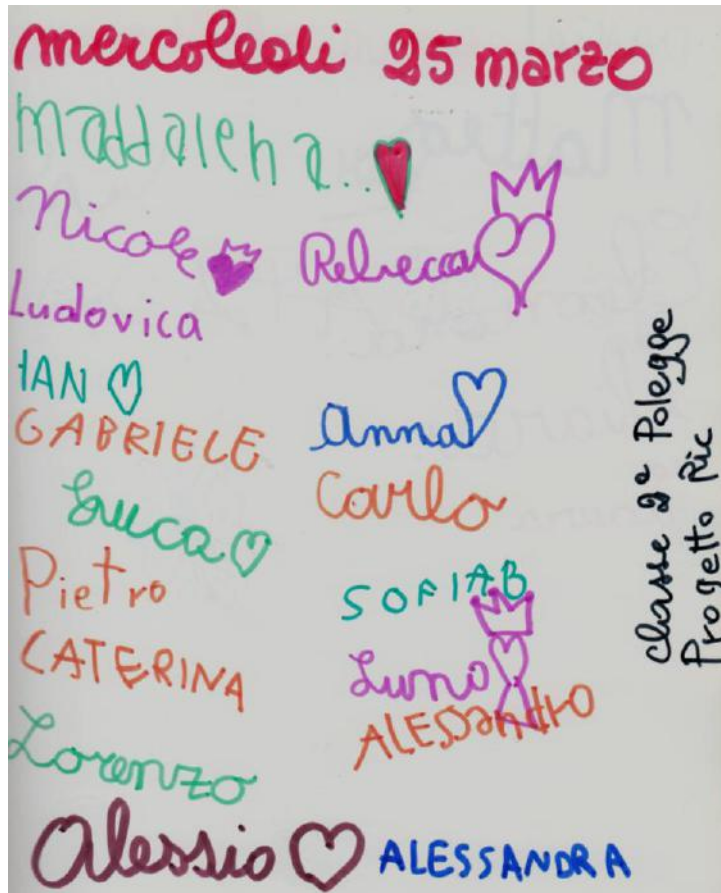 mercoledi 25 marzo
Maddalena..
Nicole Rebecca
Ludovica
IAN
GABRIELE Anna
Luca Carlo
Pietro SOFIA B
CATERINA
ALESSandrO
Lorenzo
Alessio ALESSANDRA
classe 2a Polegge
Progetto Ric